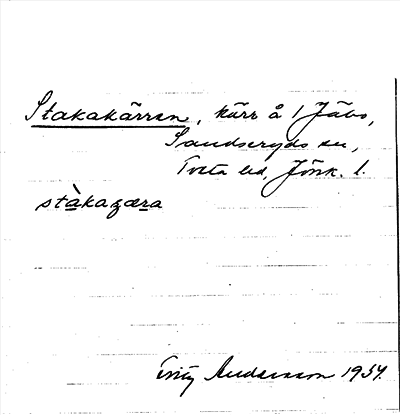 Stakakärren, kärr å 1 Jäbo,
Sandseryds sn,
Tveta hd, Jönk. l.
stàkaȥæra
Fritz Andersson 1934.